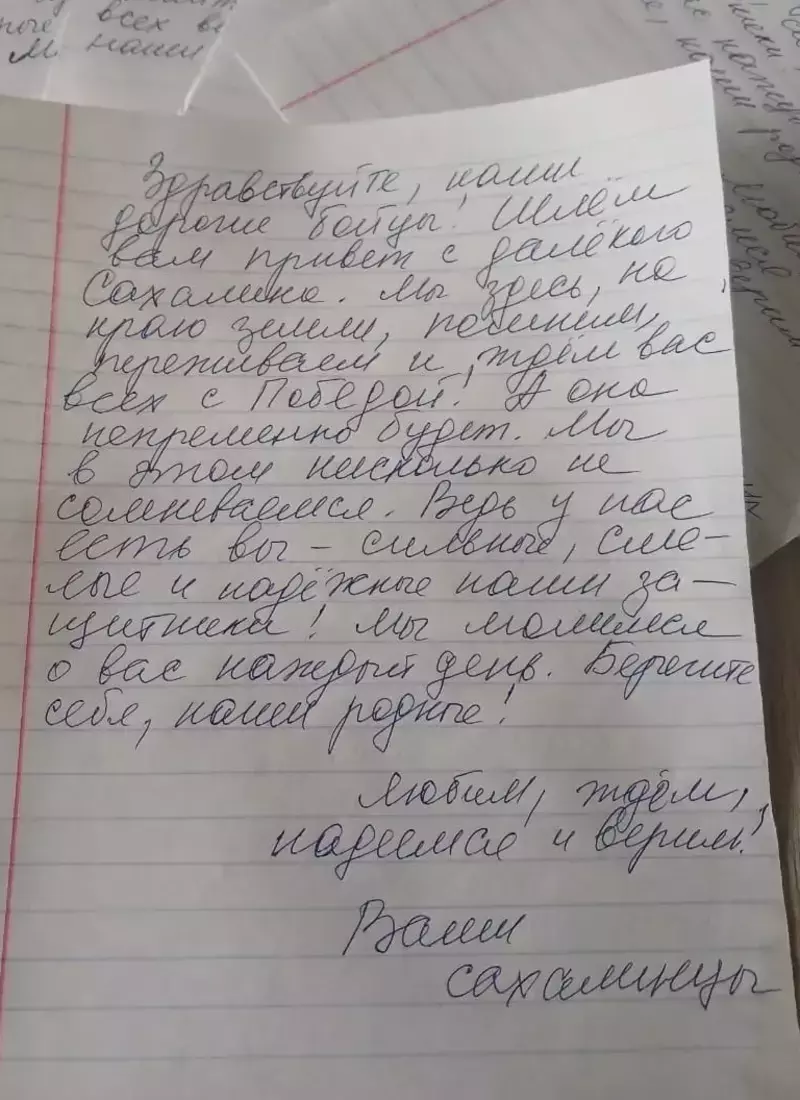 всех
М. наши
Здравствуйте, наши
дорогие бойцы! Шлём
вам привет с далёкого
Сахалина. Мы здесь, на
краю земли, помним,
переживаем и ждём вас
всех с Победой! А она
непременно будет. Мы
в этом нисколько не
сомневаемся. Ведь у нас
есть вы – сильные, сме-
лые и надёжные наши за-
щитники! Мы молимся
о вас каждый день. Берегите
себя, наши родные!
Любим, ждём,
надеемся и верим!
Ваши
сахалинцы